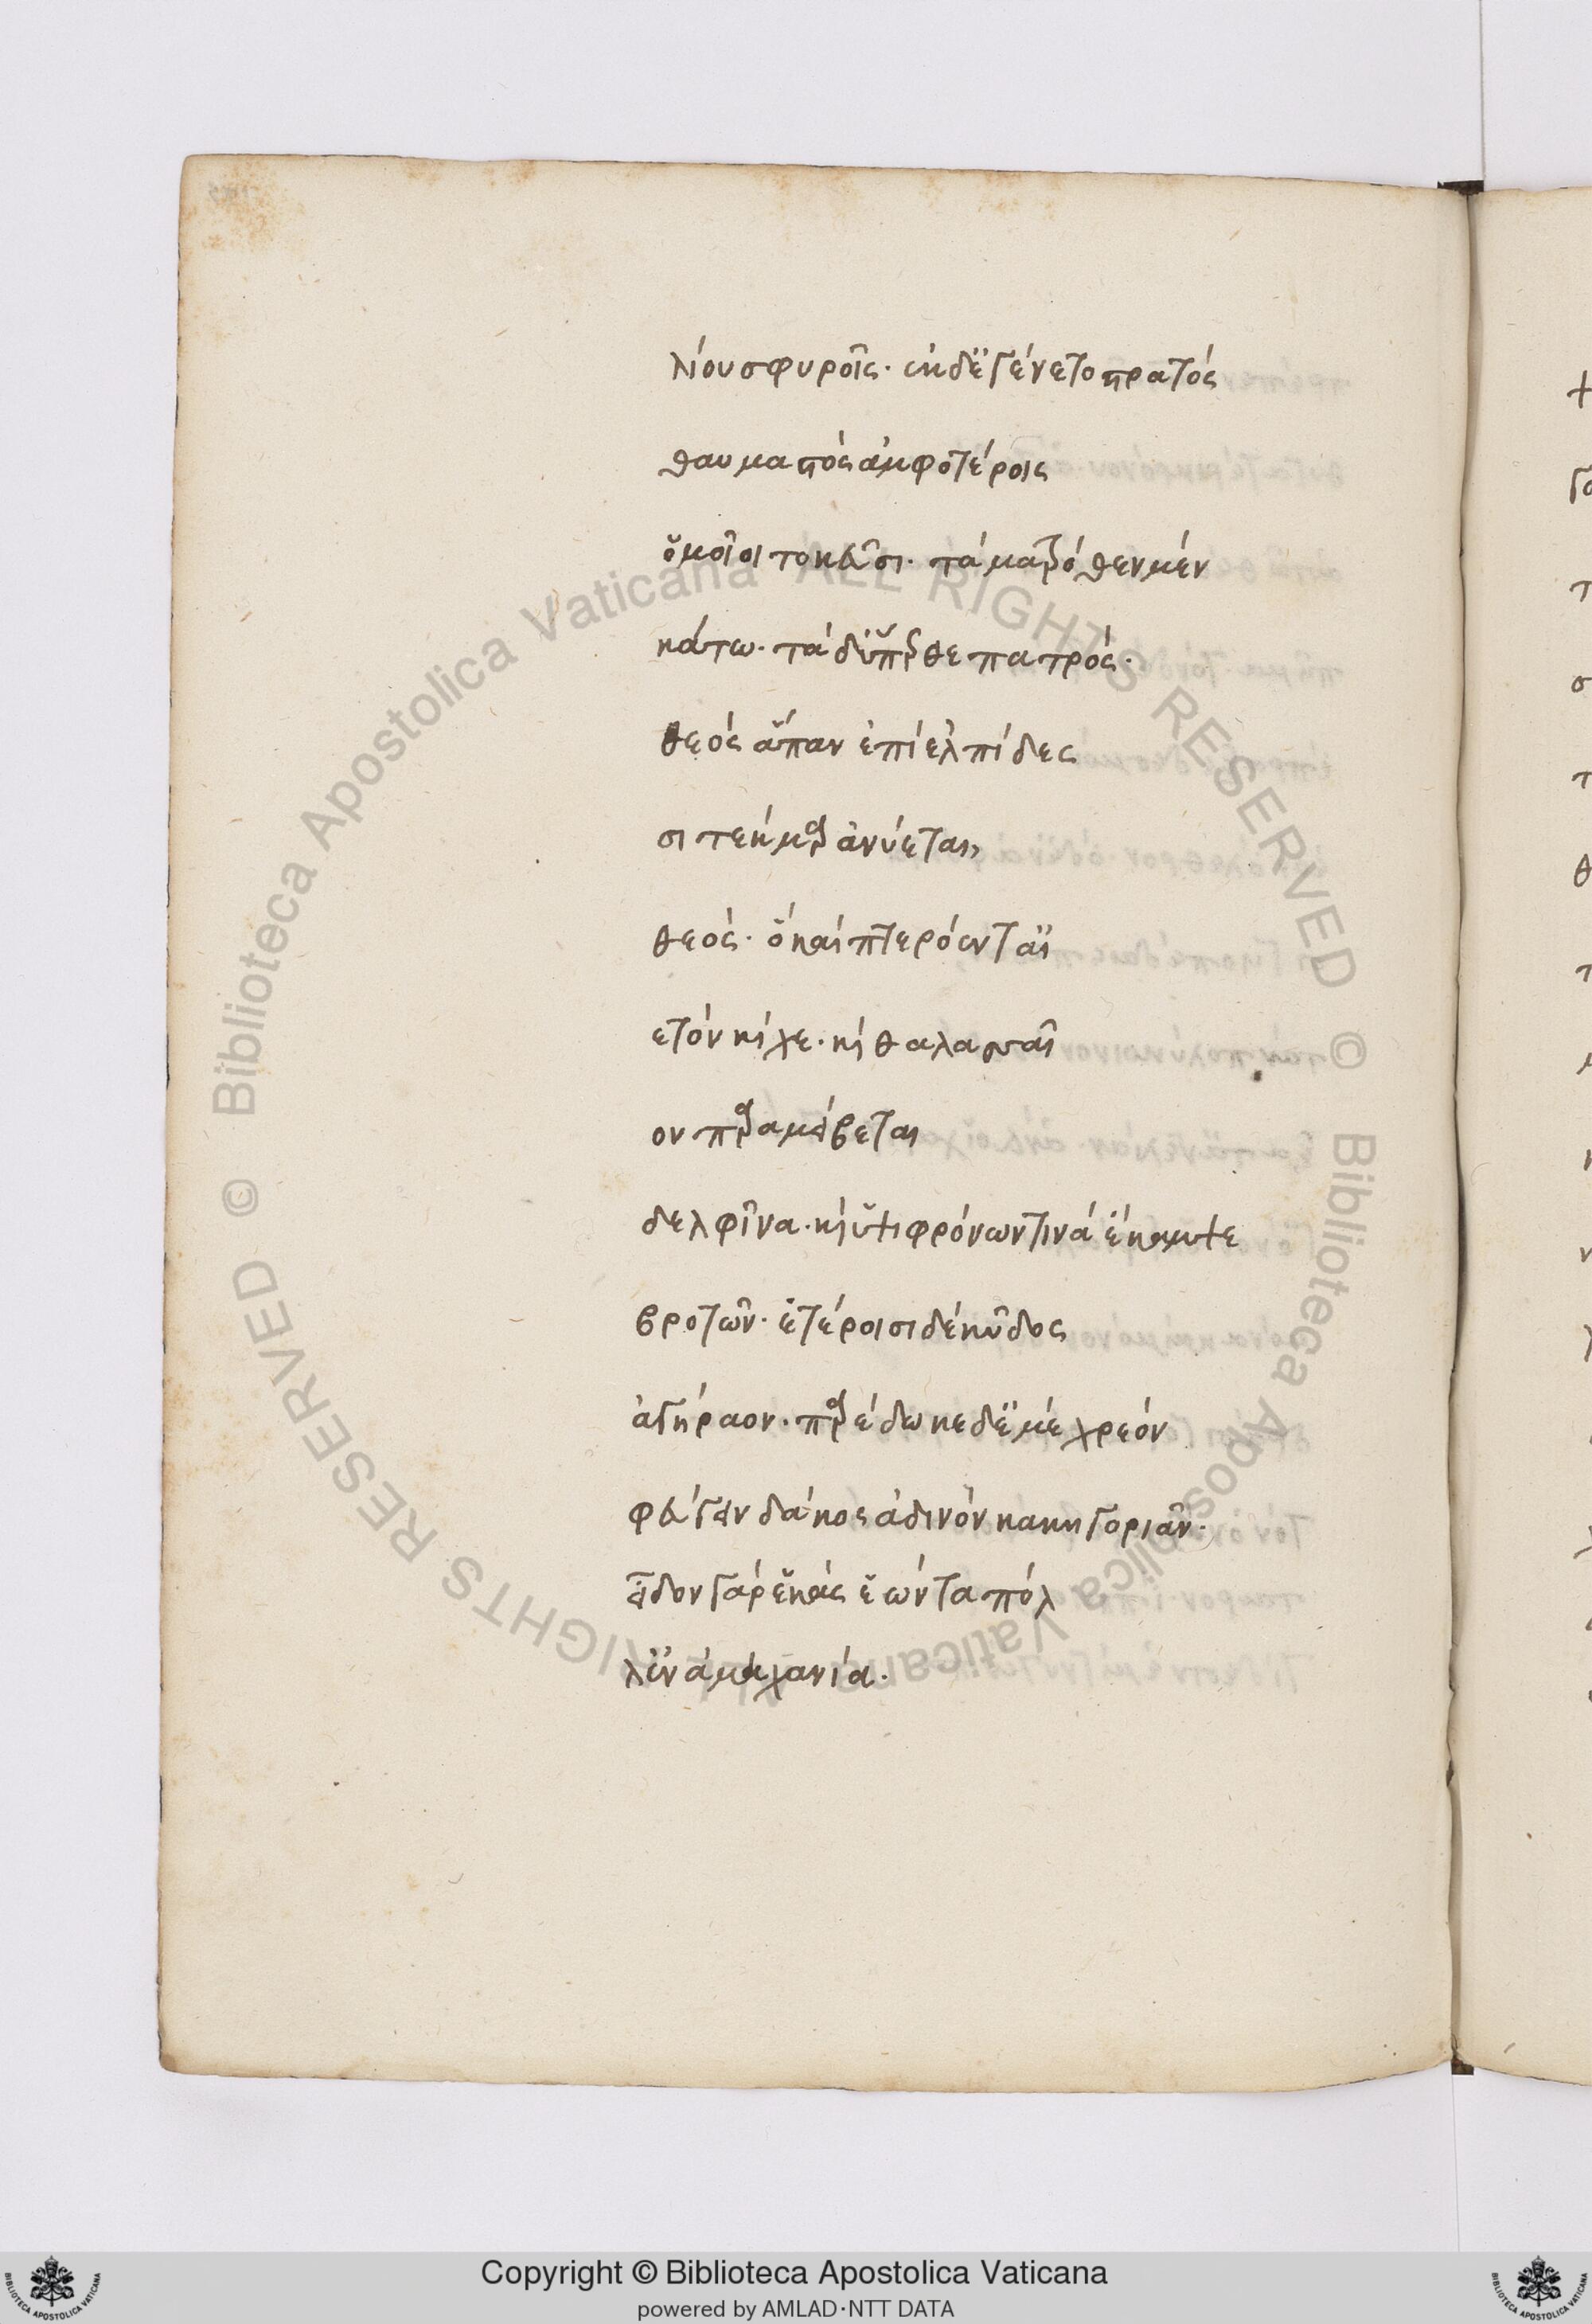 λίου σφυροῖς· ἐκ δ' ἐγένετο στρατός
θαυμαστὸς ἀμφοτέροις
ὁμοῖοι τοκεῦσι· τὰ ματρόθεν μὲν
κάτω· τὰ δ' ὕπερθε πατρός·
θεὸς ἅπαν ἐπὶ ἐλπίδες
σι τέκμαρ ἀνύεται,
θεὸς· ὃ καὶ πτερόεντ' αἰ
ετὸν κίχε· καὶ θαλασσαῖ
ον παραμείβεται
δελφῖνα· καὶ ὑψιφρόνων τινὰ ἔκαμψε
βροτῶν· ἑτέροισι δὲ κῦδος
ἀγήραον· παρέδωκε δ' ἐμὲ χρεὸν
φεύγειν δάκος ἀδινὸν κακηγοριᾶν·
εἶδον γὰρ ἑκὰς ἐὼν τὰ πόλ
λ' ἐν ἀμαχανίᾳ·
© Biblioteca Apostolica Vaticana ALL RIGHTS RESERVED © Biblioteca Apostolica Vaticana ALL RIGHTS RESERVED
Copyright © Biblioteca Apostolica Vaticana
powered by AMLAD·NTT DATA